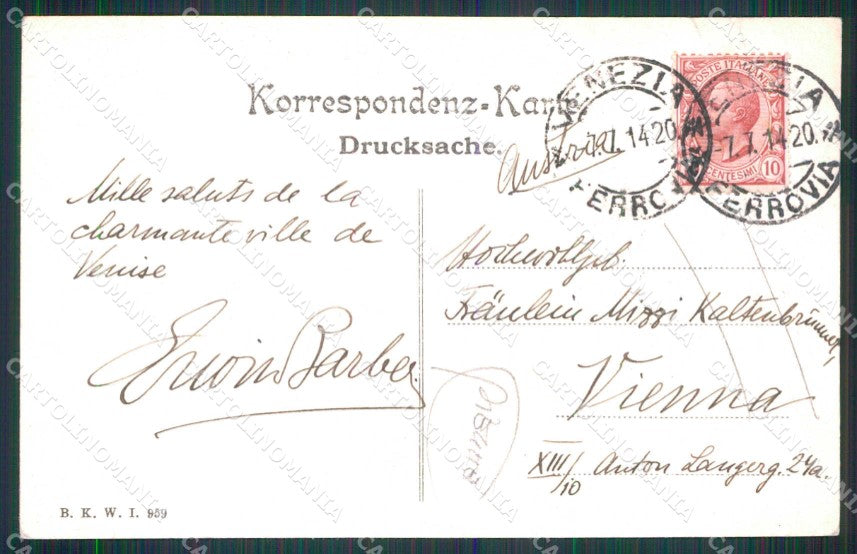 Korrespondenz-Karte
Drucksache.
VENEZIA
7.7.1420.
FERROVIA
VENEZIA
-7.7.1420.
FERROVIA
POSTE ITALIANE
CENTESIMI 10
Mille saluts de la
charmante ville de
Venise
Erwin Barber
Hochwohlgeb.
Fräulein Mizzi Kaltenbrunner,
Vienna
XIII/10 Anton Langerg. 24a.
B. K. W. I. 959
CARTOLINOMANIA